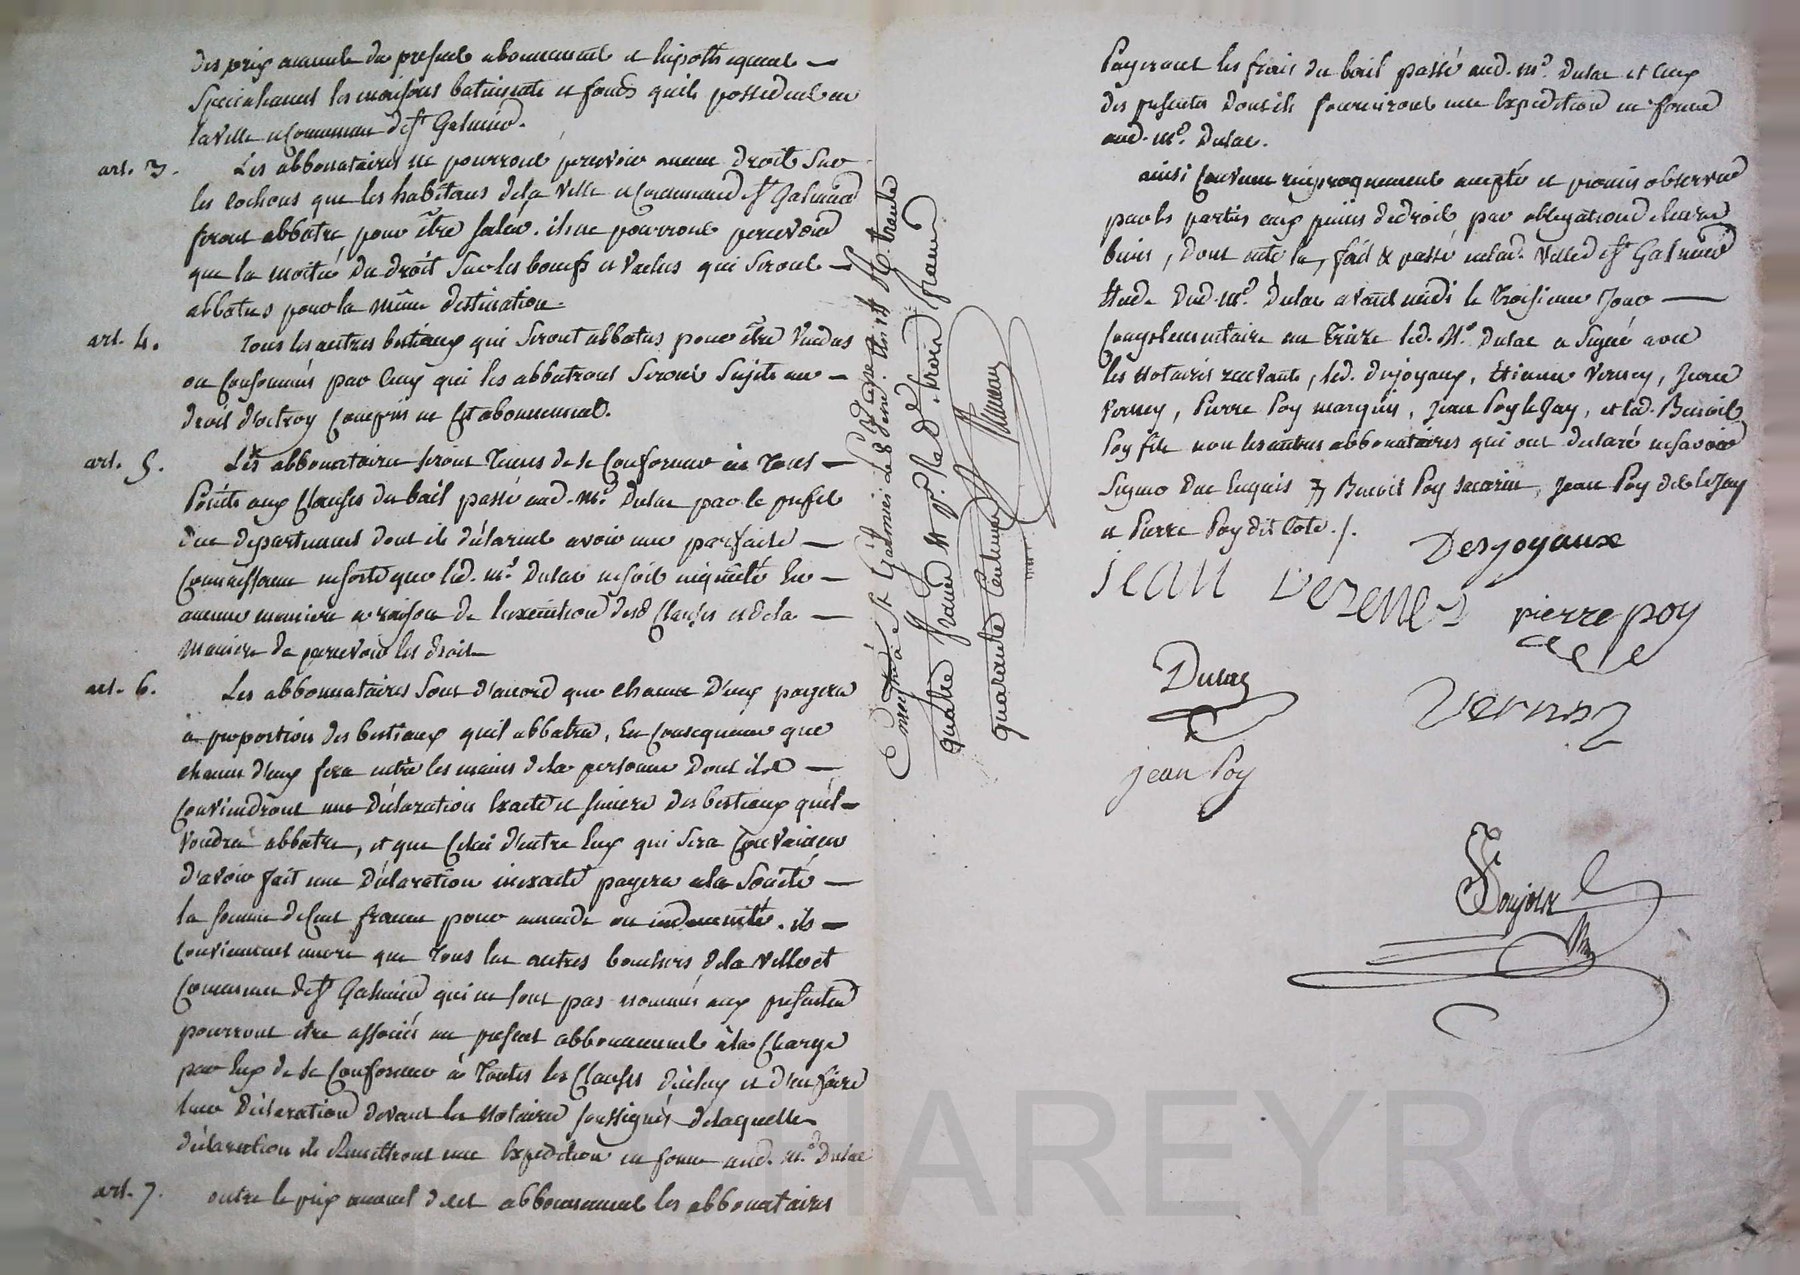 des prix annuels du present abonnement et hipothequent
specialement les maisons batiments et fonds quils possedent en
la ville et Commune de St Galmier.
art. 3. Les abbonataires ne pourront percevoir aucun droit sur
les cochons que les habitans de la ville et Commune de St Galmier
feront abbatre pour être salés. ils ne pourront percevoir
que la moitié du droit sur les boeufs et vaches qui seront
abbatus pour la même destination.
art. 4. Tous les autres bestiaux qui seront abbatus pour être vendus
ou consommés par ceux qui les abbatront seront sujets au
droit d'octroy compris en cet abonnement.
art. 5. Les abbonataires seront tenus de se conformer en tous
points aux Clauses du bail passé aud. mr. Dulac par le prefet
du departement dont ils déclarent avoir une parfaite
Connaissance ensorte que led. mr. Dulac ne soit inquiété en
aucune maniere a raison de l'execution desd Clauses et de la
maniere de percevoir les droits
art. 6. Les abbonnataires sont d'accord que chacun d'eux payera
a proportion des bestiaux quil abbatra, en consequence que
chacun d'eux fera entre les mains de la personne dont ils
conviendront une déclaration exacte et sincere des bestiaux quil
voudra abbatre, et que celui d'entre eux qui sera convaincu
d'avoir fait une déclaration inexacte payera a la Société
la somme de cent francs pour amende ou indemnité. ils
conviennent encore que tous les autres bouchers de la ville et
Commune de St Galmier qui ne sont pas nommés aux presentes
pourront etre associés au present abbonnement à la Charge
par eux de se conformer à toutes les Clauses d'icelui et d'en faire
leur déclaration devant les Notaires soussignés de laquelle
déclaration ils remettront une expédition en forme aud. mr. Dulac
art. 7. outre le prix annuel de cet abbonnement les abbonataires
Enregistré à St Galmier le
quatre francs
quarante centimes
payeront les frais du bail passé aud. mr. Dulac et ceux
des presentes dont ils fourniront une expedition en forme
aud. mr. Dulac.
ainsi convenu reciproquement accepté et promis observer
par les parties aux peines de droit par obligation de leurs
biens, dont acte lu, fait & passé en lad. ville de St Galmier
Etude dud. mr. Dulac avant midi le troisieme jour
Complementaire an treize led. Mr. Dulac a signé avec
les Notaires recevants, led. Desjoyaux, Etienne Verney, Jean
Verney, Pierre Poy marquis, Jean Poy le Gay, et led. Benoit
Poy fils non les autres abbonataires qui ont declaré ne savoir
signer de ce enquis Benoit Poy, Jean Poy dit le Gay
et Pierre Poy dit Cote ./.
Desjoyaux
Jean pierre poy
Dulac
Verney
jean Poy
CHAREYRO